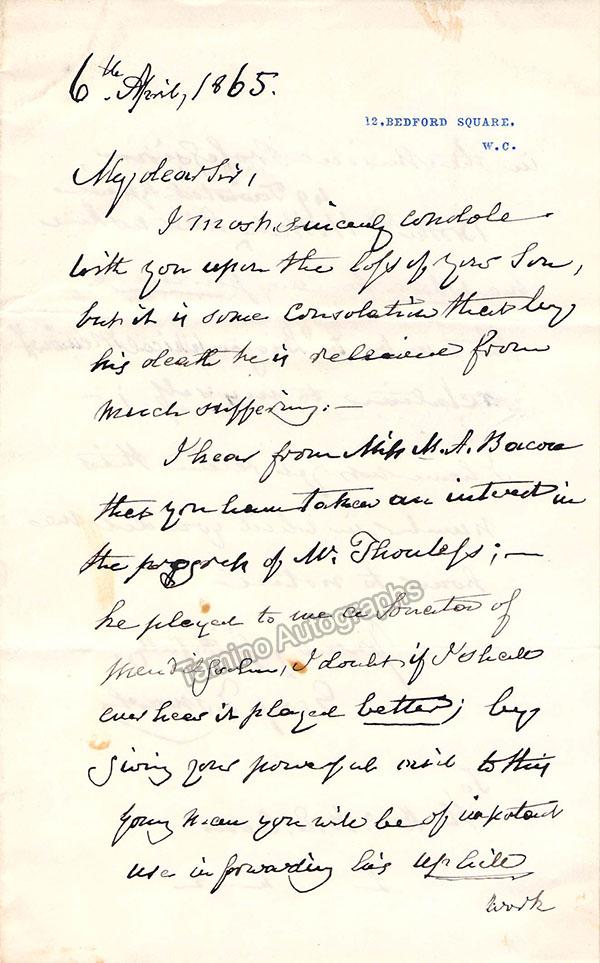 6th April, 1865.
12, BEDFORD SQUARE,
W.C.
My dear Sir,
I most sincerely condole
with you upon the loss of your Son,
but it is some consolation that by
his death he is relieved from
much suffering:—
I hear from Miss M. A. Bacon
that you have taken an interest in
the progress of Mr. Thouless;—
he played to me a Sonata of
Mendelssohn, I doubt if I shall
ever hear it played better; by
giving your powerful aid to this
young man you will be of important
use in forwarding his uphill
work
Tamino Autographs